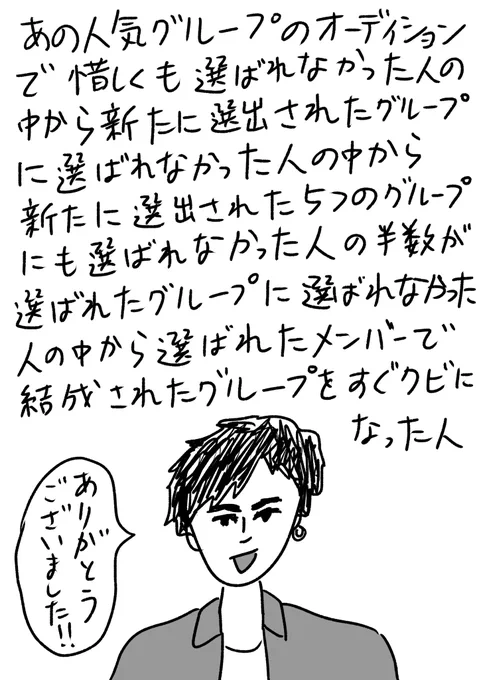 あの人気グループのオーディション
で惜しくも選ばれなかった人の
中から新たに選出されたグループ
に選ばれなかった人の中から
新たに選出された5つのグループ
にも選ばれなかった人の半数が
選ばれたグループに選ばれなかった
人の中から選ばれたメンバーで
結成されたグループをすぐクビに
なった人
ありがとう
ございました!!